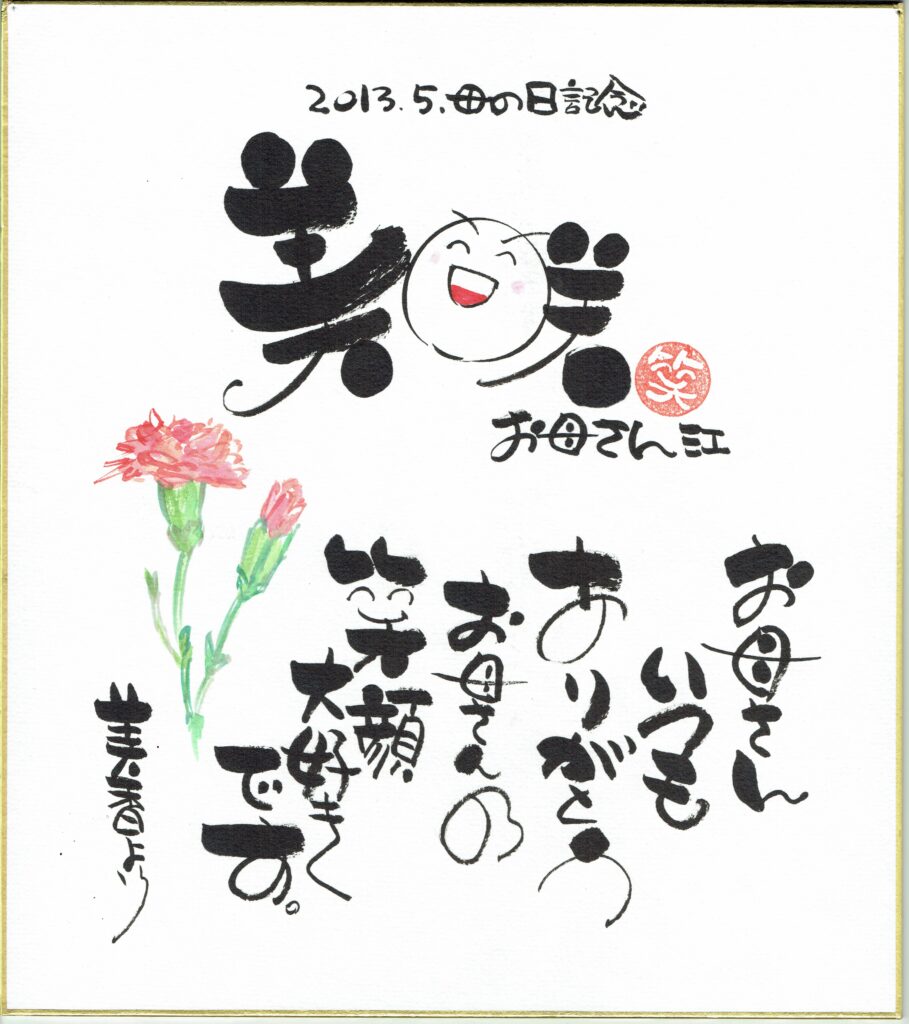 2013.5.母の日記念
美咲
笑
お母さん江
お母さん
いつも
ありがとう
お母さんの
笑顔
大好き
です。
より